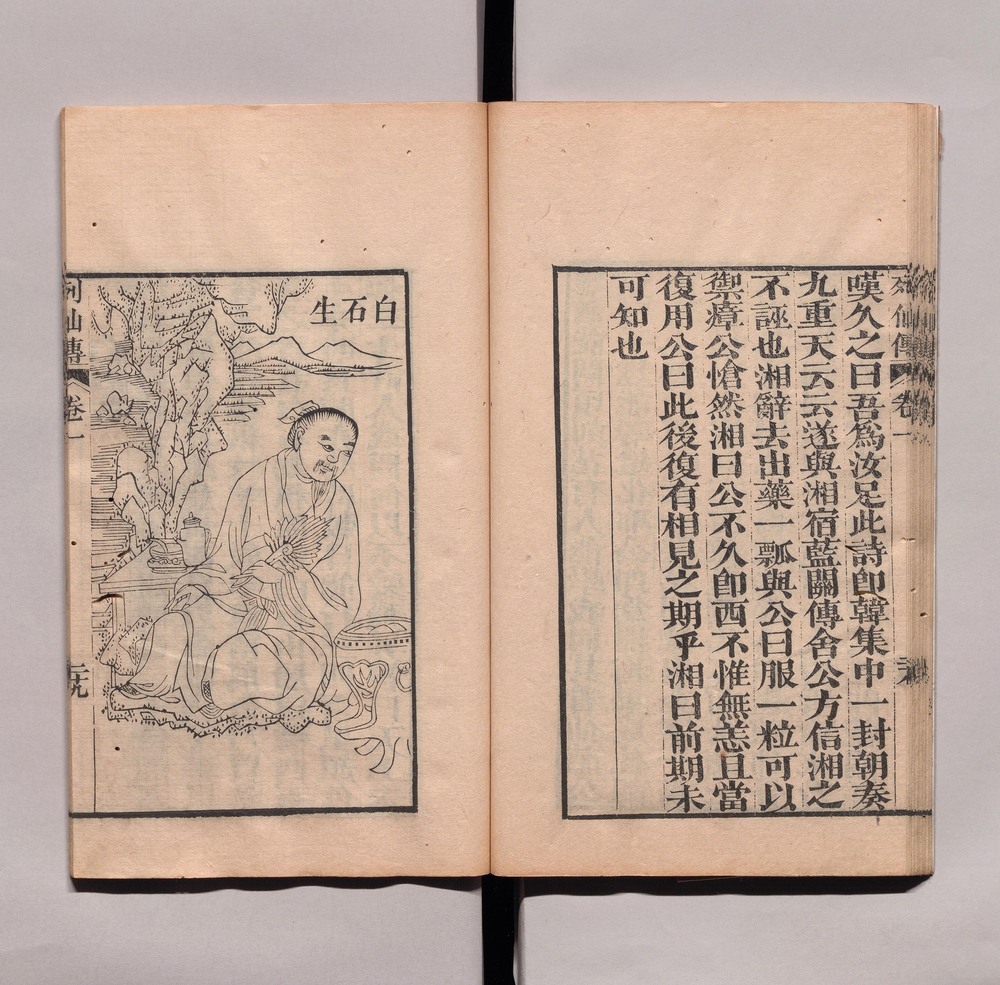 列仙傳 卷一
嘆久之曰吾爲汝足此詩卽韓集中一封朝奏
九重天云云遂與湘宿藍關傳舍公方信湘之
不誣也湘辭去出藥一瓢與公曰服一粒可以
禦瘴公愴然湘曰公不久卽西不惟無恙且當
復用公曰此後復有相見之期乎湘曰前期未
可知也
白石生
列仙傳 卷一 二十九